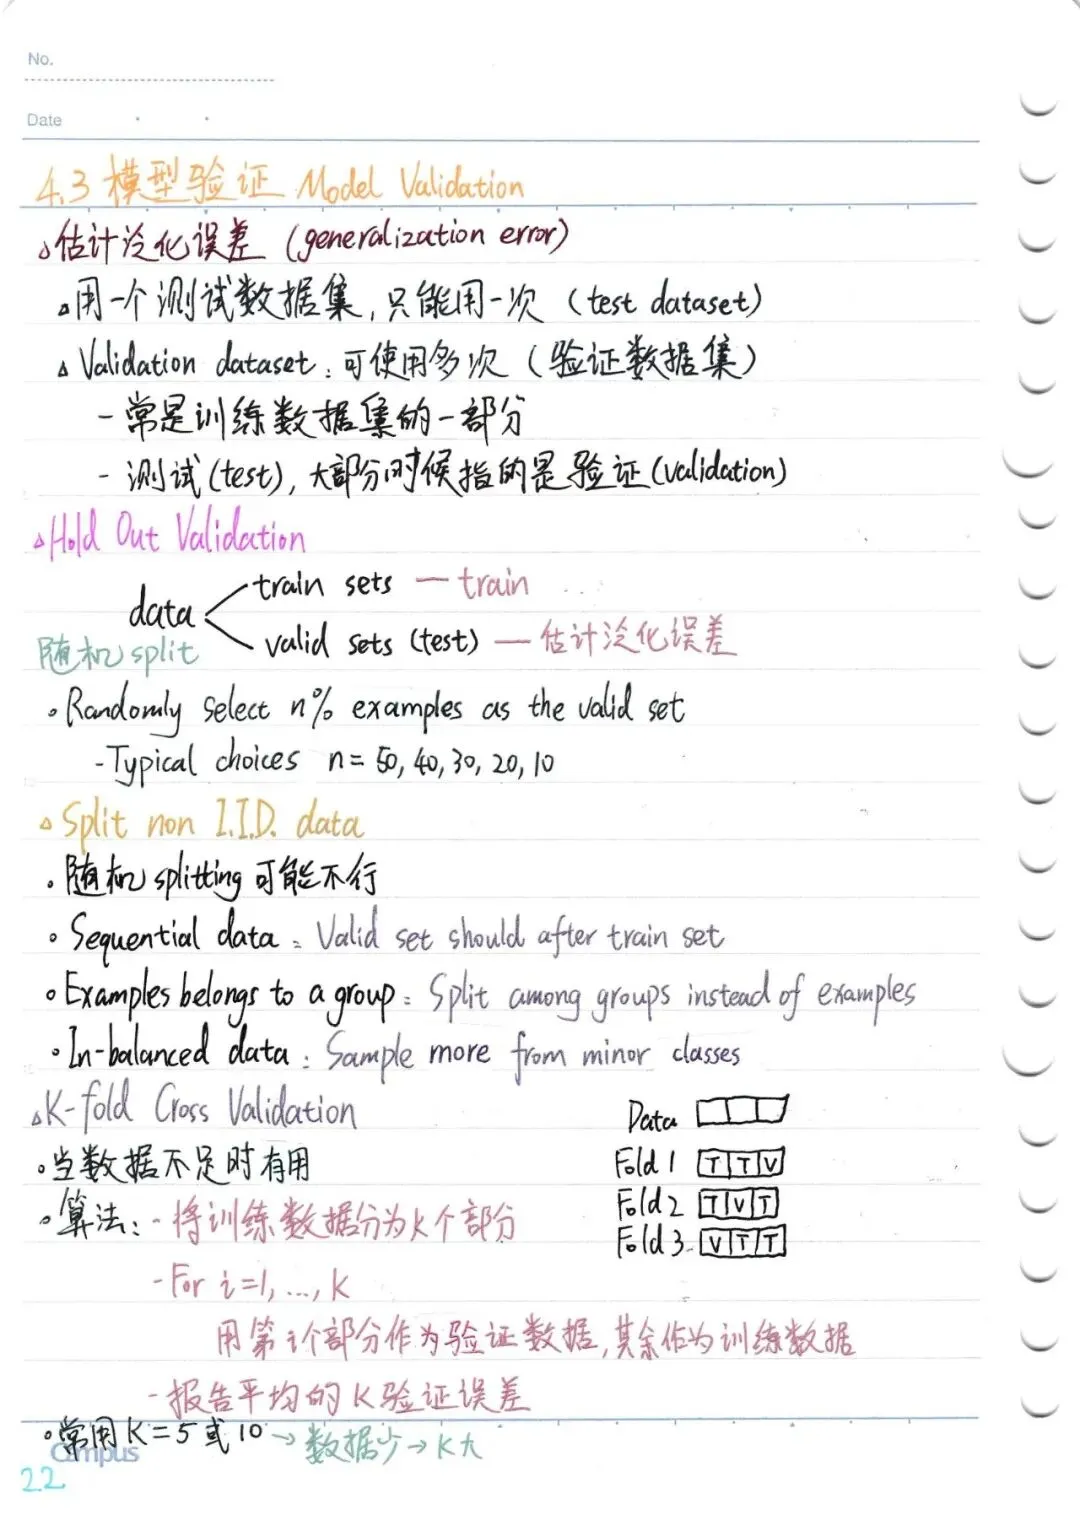 No.
Date
4.3 模型验证 Model Validation
△估计泛化误差 (generalization error)
△用一个测试数据集,只能用一次 (test dataset)
△ Validation dataset:可使用多次 (验证数据集)
- 常是训练数据集的一部分
- 测试(test),大部分时候指的是验证(validation)
△Hold Out Validation
train sets — train
data
valid sets (test) — 估计泛化误差
随机split
• Randomly select n% examples as the valid set
- Typical choices n = 50, 40, 30, 20, 10
△ Split non I.I.D. data
• 随机splitting可能不行
• Sequential data : Valid set should after train set
• Examples belongs to a group : Split among groups instead of examples
• In-balanced data : Sample more from minor classes
△K-fold Cross Validation
Data
•当数据不足时有用
Fold 1 T T V
•算法: - 将训练数据分为K个部分
Fold 2 T V T
Fold 3 V T T
- For i=1, ..., K
用第i个部分作为验证数据,其余作为训练数据
- 报告平均的K验证误差
•常用K=5或10 → 数据少 → K大
Campus
22